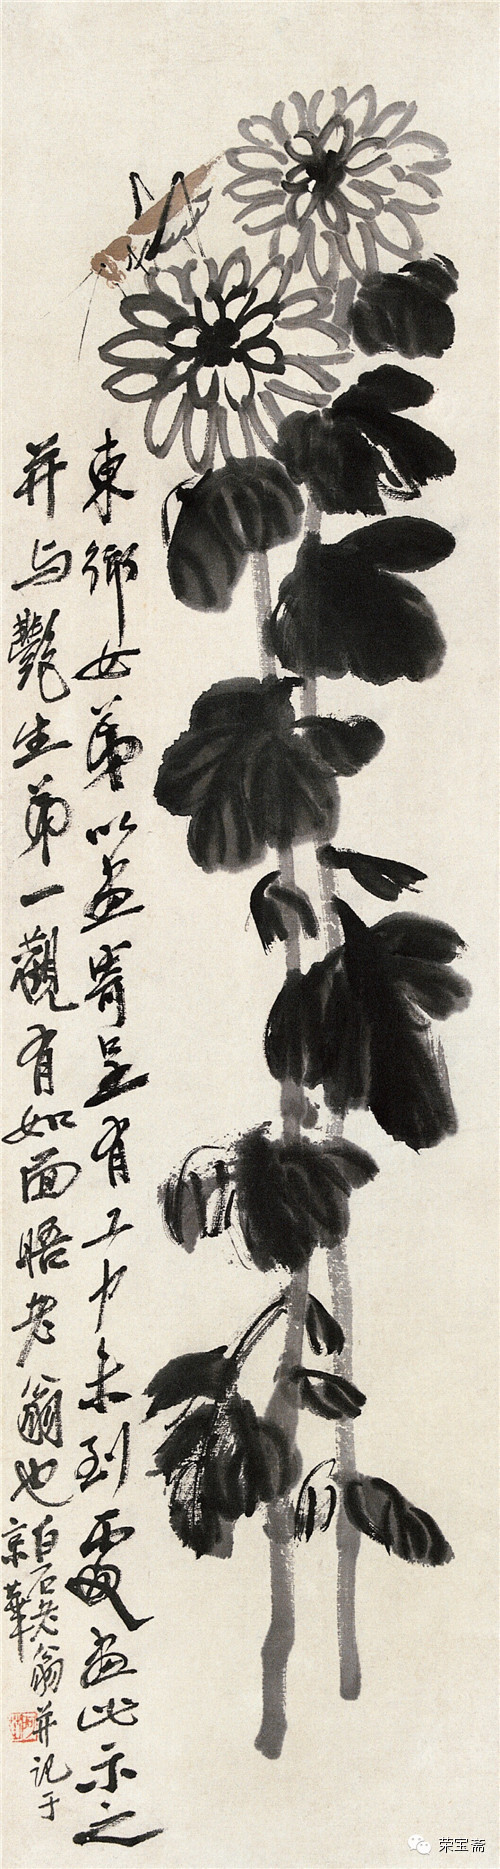 東鄉女弟以畫寄呈有工力未到處畫此示之
并与艷生弟一觀有如面晤老翁也
白石老翁并記于
京華
荣宝斋